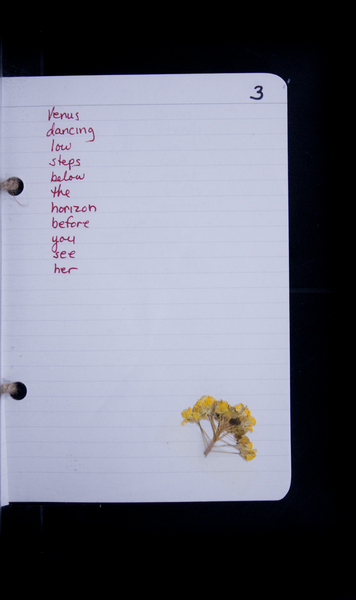 3
Venus
dancing
low
steps
below
the
horizon
before
you
see
her